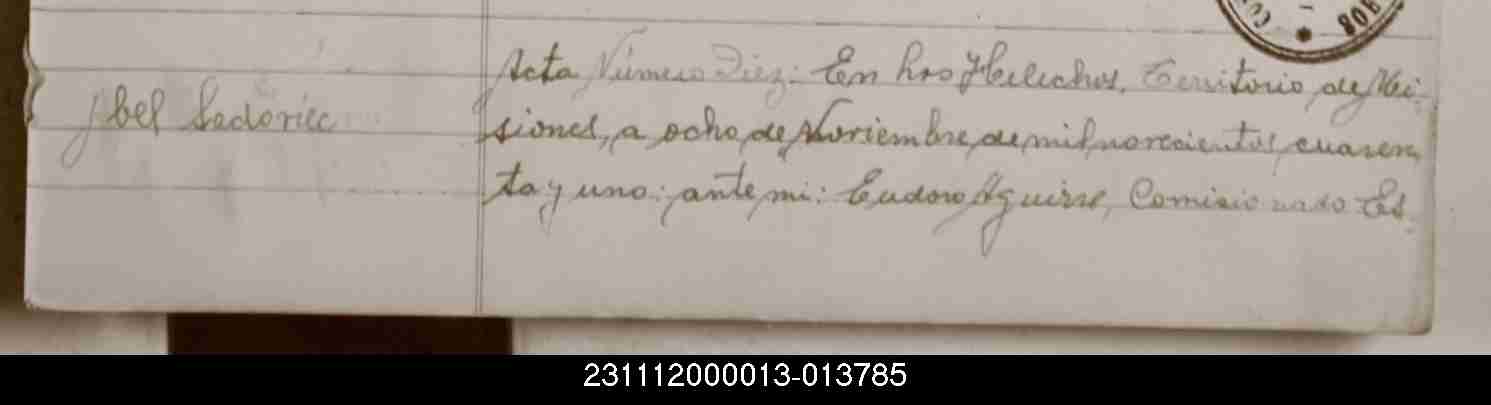 Abel Sadoriec
Acta Número Diez: En los Helechos, Territorio de Mi-
siones, a ocho de Noviembre de mil novecientos cuaren
ta y uno: ante mi: Eudoro Aguirre, Comisionado Es
231112000013-013785